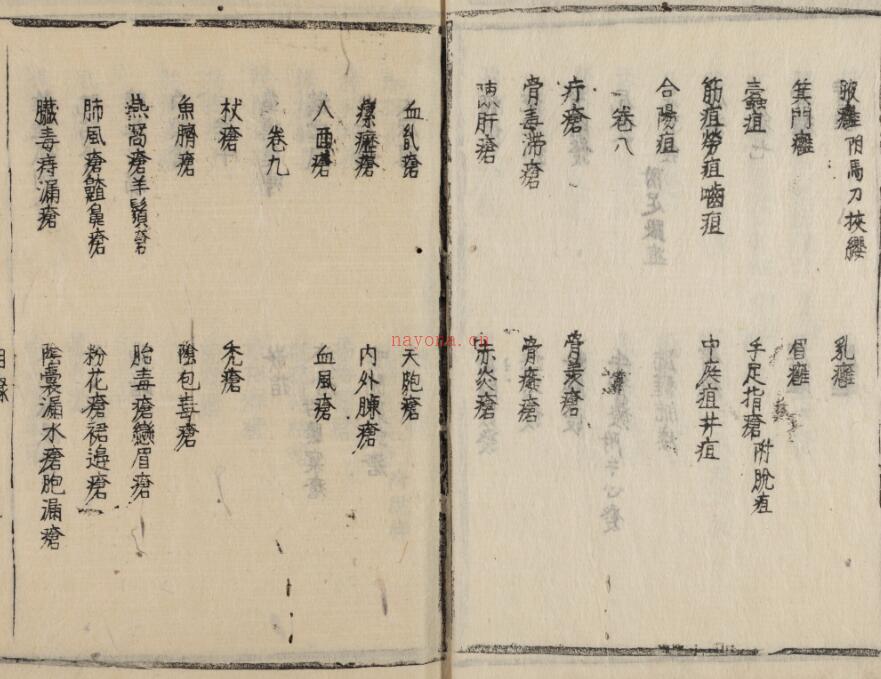 腋癰附馬刀挾纓 乳癰
箕門癰 眉癰
蠱疽 手足指瘡附脫疽
筋疽勞疽嚙疽 中庭疽井疽
合陽疽
卷八
疔瘡 骨羨瘡
骨毒滯瘡 骨痿瘡
肝瘡 赤炎瘡
血瘡 天胞瘡
癧瘡 內外臁瘡
人面瘡 血風瘡
卷九
杖瘡 禿瘡
魚臍瘡 陰包毒瘡
燕窩瘡羊鬚瘡 胎毒瘡戀眉瘡
肺風瘡齄鼻瘡 粉花瘡裙邊瘡
臟毒痔漏瘡 陰囊漏水瘡胞漏瘡
nayona.cn